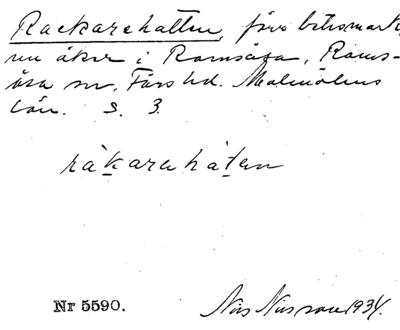 Rackarehatten, förr betesmark,
nu åker i Ramsåsa, Rams-
åsa sn, Färs hd. Malmöhus
län. S. 3.
råkarahåten
Nr 5590.
Nils Nilsson 1934.